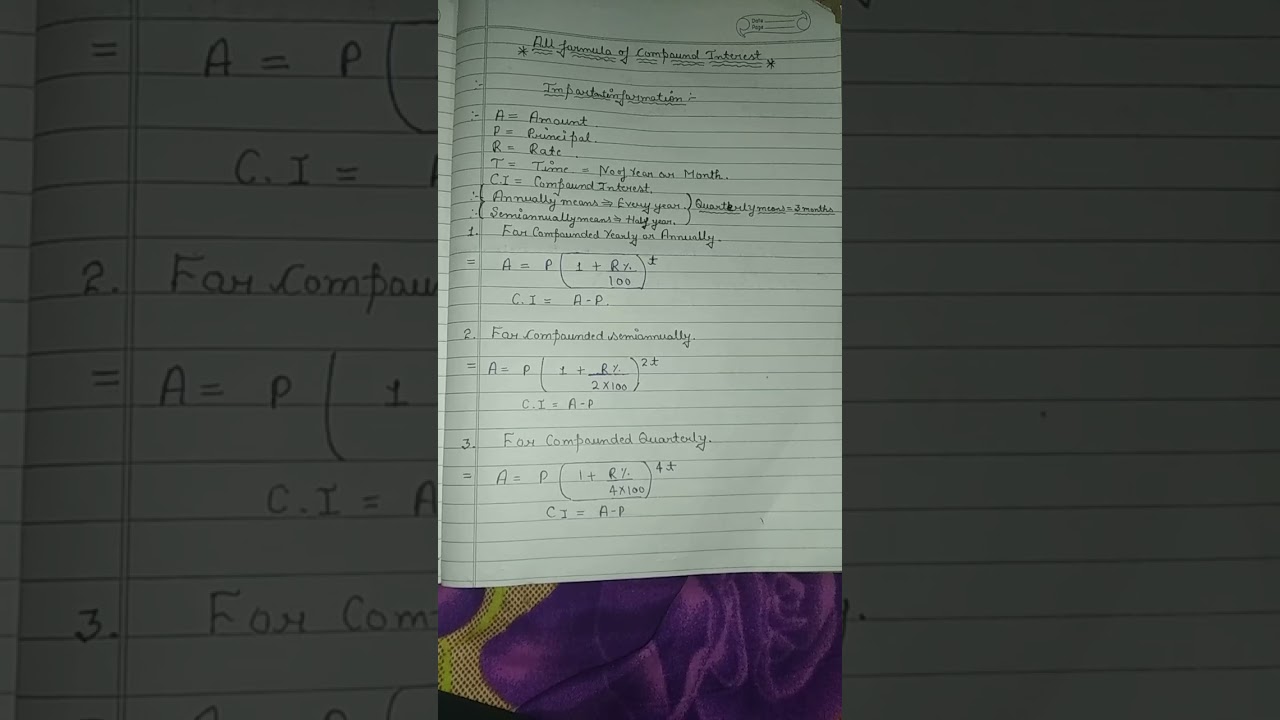 Date
Page
* All formula of Compound Interest *
:- Important information :-
:- A = Amount
P = Principal.
R = Rate
T = Time = No of Year or Month.
C.I = Compound Interest.
∴ ( Annually means ⇒ Every year. ) Quarterly means = 3 months
∴ ( Semiannually means ⇒ Half year. )
1. For Compounded Yearly or Annually.
= A = P ( 1 + R% / 100 )^t
C.I = A - P.
2. For Compounded semiannually.
= A = P ( 1 + R% / 2×100 )^2t
C.I = A - P
3. For Compounded Quarterly.
= A = P ( 1 + R% / 4×100 )^4t
C I = A - P